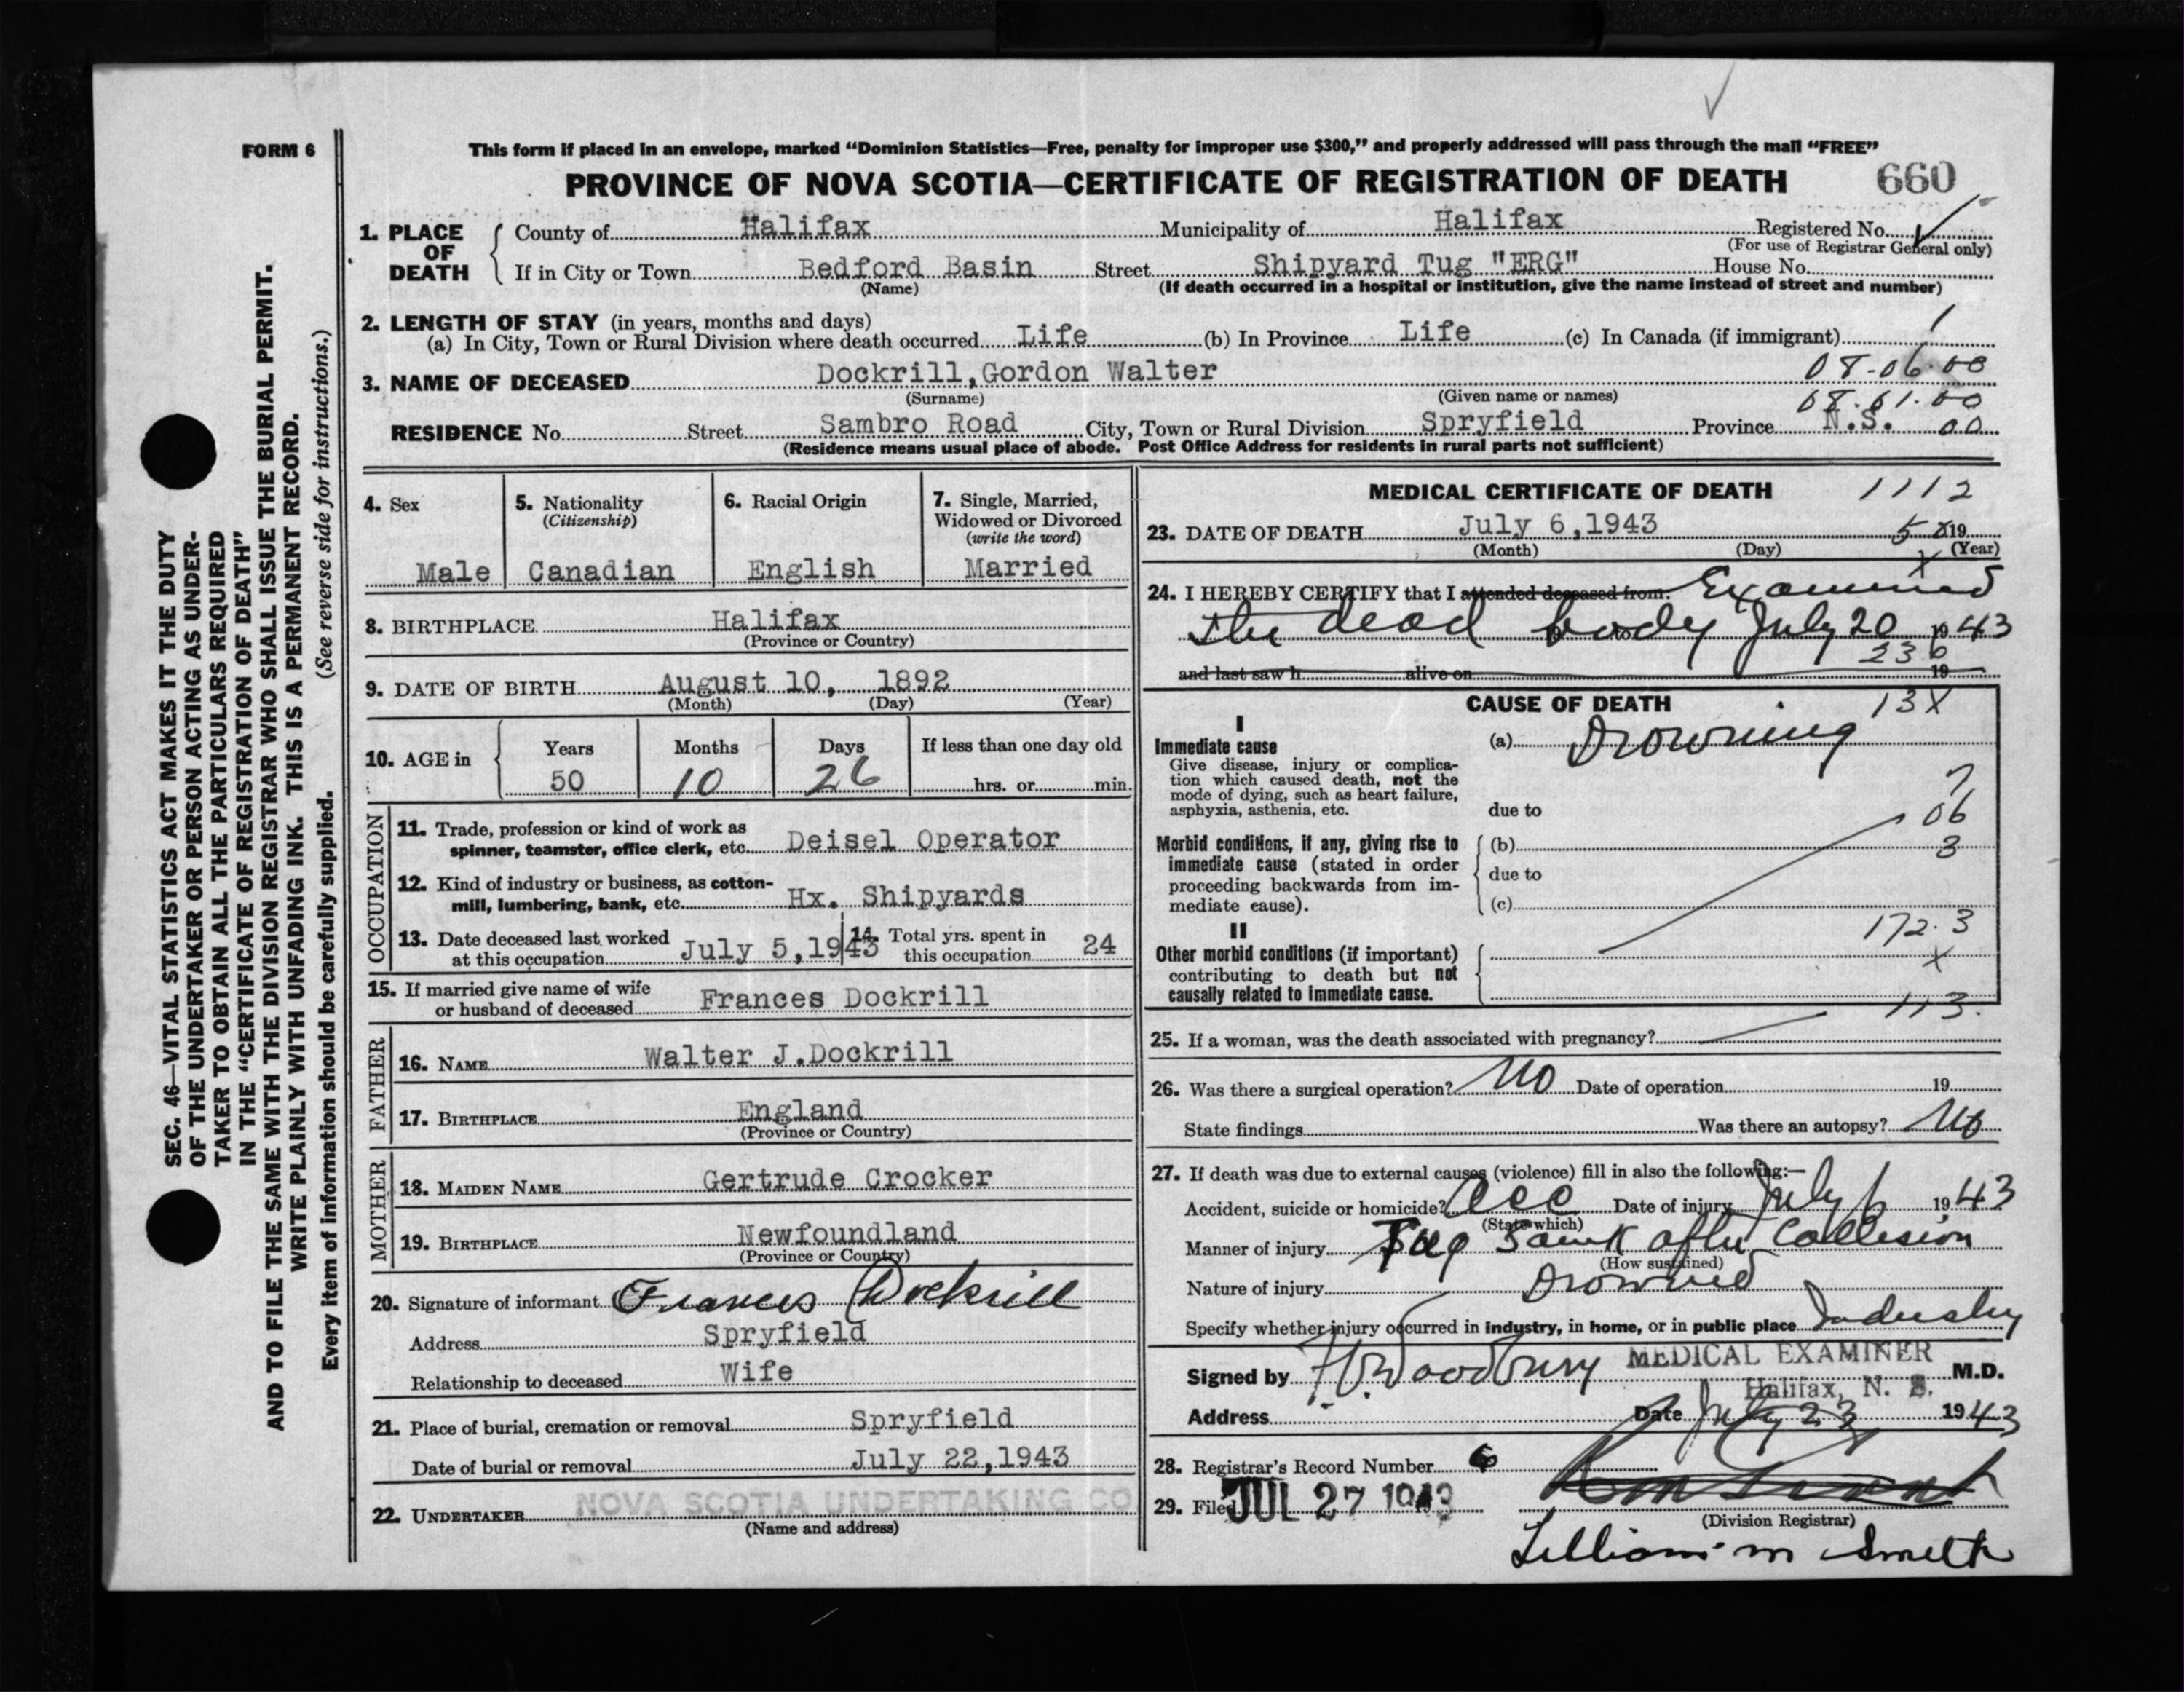 FORM 6
This form if placed in an envelope, marked "Dominion Statistics—Free, penalty for improper use $300," and properly addressed will pass through the mail "FREE"
PROVINCE OF NOVA SCOTIA—CERTIFICATE OF REGISTRATION OF DEATH 660
1. PLACE OF DEATH
County of Halifax Municipality of Halifax Registered No.
(For use of Registrar General only)
If in City or Town Bedford Basin Street Shipyard Tug "ERG" House No.
(Name) (If death occurred in a hospital or institution, give the name instead of street and number)
2. LENGTH OF STAY (in years, months and days)
(a) In City, Town or Rural Division where death occurred Life (b) In Province Life (c) In Canada (if immigrant)
3. NAME OF DECEASED Dockrill,Gordon Walter 08-06-00
(Surname) (Given name or names) 08.61.00
RESIDENCE No. Street Sambro Road City, Town or Rural Division Spryfield Province N.S. 00
(Residence means usual place of abode. Post Office Address for residents in rural parts not sufficient)
4. Sex
Male
5. Nationality
(Citizenship)
Canadian
6. Racial Origin
English
7. Single, Married,
Widowed or Divorced
(write the word)
Married
8. BIRTHPLACE Halifax
(Province or Country)
9. DATE OF BIRTH August 10, 1892
(Month) (Day) (Year)
10. AGE in
Years Months Days If less than one day old
50 10 26 hrs. or min.
OCCUPATION
11. Trade, profession or kind of work as
spinner, teamster, office clerk, etc. Deisel Operator
12. Kind of industry or business, as cotton-
mill, lumbering, bank, etc. Hx. Shipyards
13. Date deceased last worked
at this occupation July 5,1943
14. Total yrs. spent in
this occupation 24
15. If married give name of wife
or husband of deceased Frances Dockrill
FATHER
16. NAME Walter J.Dockrill
17. BIRTHPLACE England
(Province or Country)
MOTHER
18. MAIDEN NAME Gertrude Crocker
19. BIRTHPLACE Newfoundland
(Province or Country)
20. Signature of informant Frances Dockrill
Address Spryfield
Relationship to deceased Wife
21. Place of burial, cremation or removal Spryfield
Date of burial or removal July 22,1943
22. UNDERTAKER NOVA SCOTIA UNDERTAKING CO
(Name and address)
MEDICAL CERTIFICATE OF DEATH 1112
23. DATE OF DEATH July 6,1943 5 x 19
(Month) (Day) (Year)
24. I HEREBY CERTIFY that I attended deceased from: Examined
the dead body July 20 1943
236
and last saw h alive on 19
CAUSE OF DEATH 13X
I
Immediate cause
Give disease, injury or complica-
tion which caused death, not the
mode of dying, such as heart failure,
asphyxia, asthenia, etc.
(a) Drowning
due to
7
06
3
Morbid conditions, if any, giving rise to
immediate cause (stated in order
proceeding backwards from im-
mediate cause).
(b)
due to
(c)
172.3
II
Other morbid conditions (if important)
contributing to death but not
causally related to immediate cause.
X
113.
25. If a woman, was the death associated with pregnancy?
26. Was there a surgical operation? No Date of operation 19
State findings Was there an autopsy? No
27. If death was due to external causes (violence) fill in also the following:—
Accident, suicide or homicide? Acc Date of injury July 6 1943
(State which)
Manner of injury Tug Sank after Collision
(How sustained)
Nature of injury Drowned
Specify whether injury occurred in industry, in home, or in public place Industry
Signed by H. Woodbury MEDICAL EXAMINER M.D.
Halifax, N. S.
Address Date July 23 1943
28. Registrar's Record Number 6
29. Filed JUL 27 1943
(Division Registrar)
Lillian m Smith
SEC. 46—VITAL STATISTICS ACT MAKES IT THE DUTY
OF THE UNDERTAKER OR PERSON ACTING AS UNDER-
TAKER TO OBTAIN ALL THE PARTICULARS REQUIRED
IN THE "CERTIFICATE OF REGISTRATION OF DEATH"
AND TO FILE THE SAME WITH THE DIVISION REGISTRAR WHO SHALL ISSUE THE BURIAL PERMIT.
WRITE PLAINLY WITH UNFADING INK. THIS IS A PERMANENT RECORD.
Every item of information should be carefully supplied. (See reverse side for instructions.)